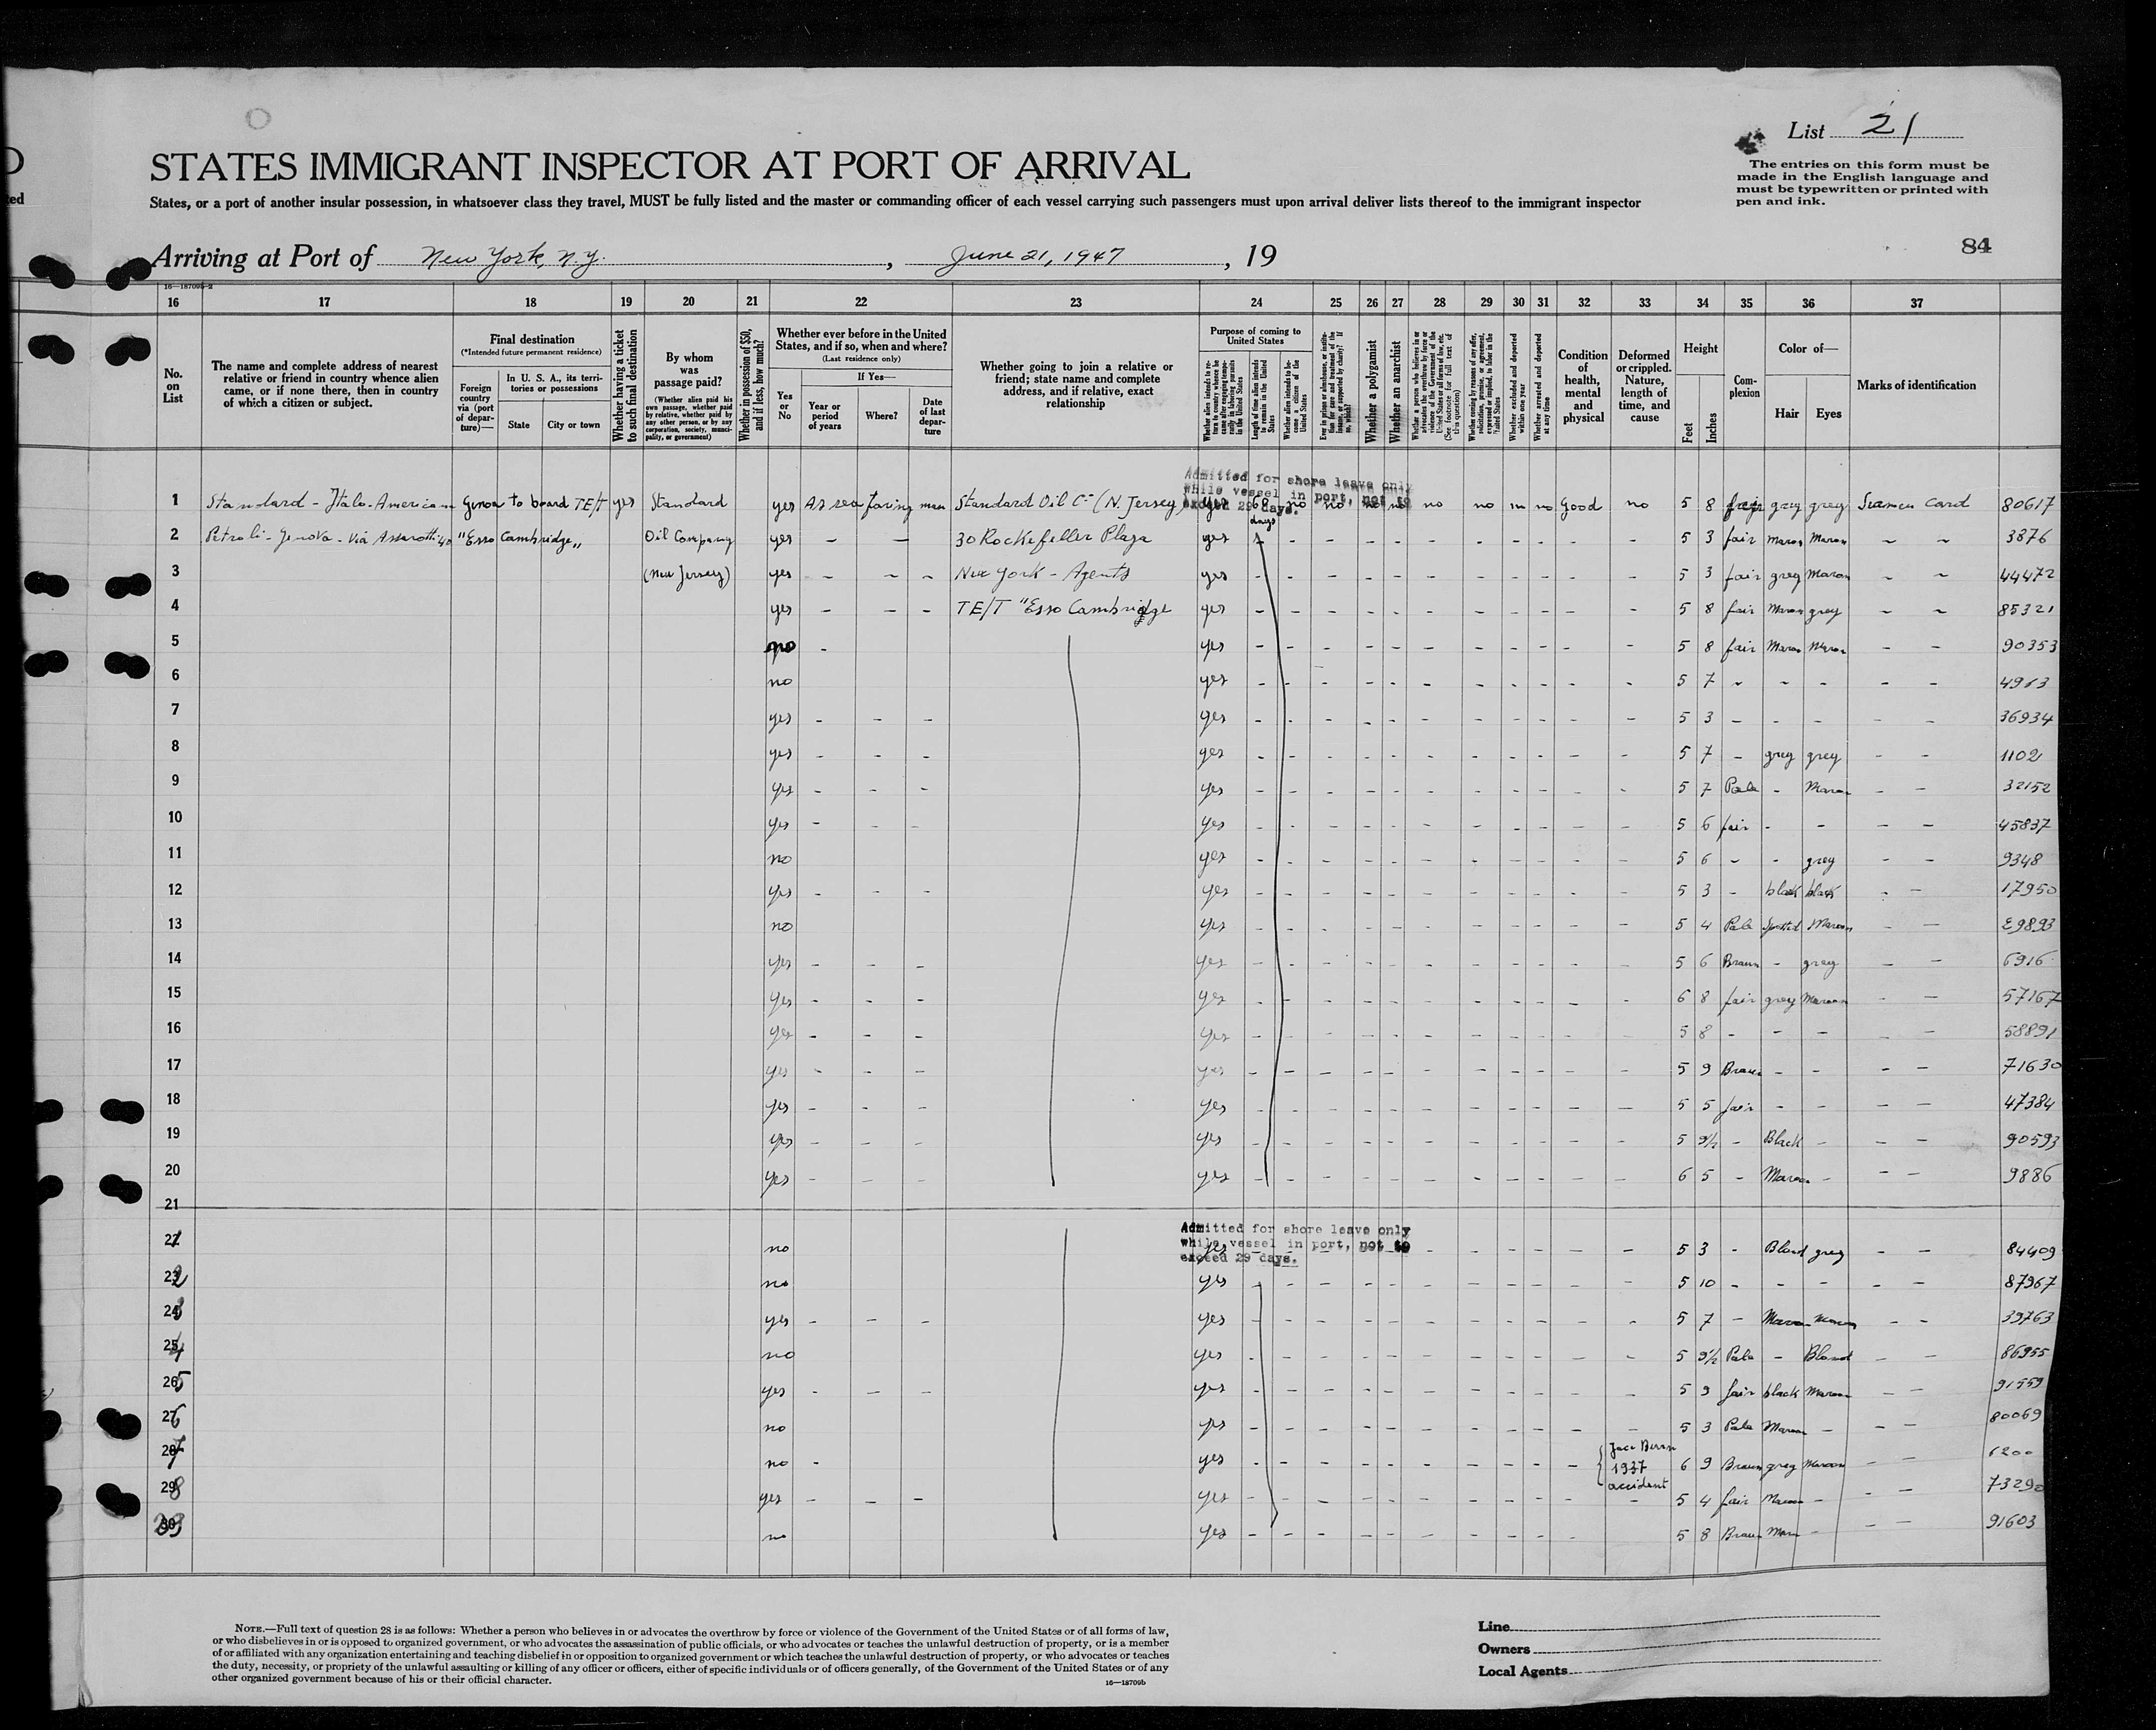 List 21
The entries on this form must be
made in the English language and
must be typewritten or printed with
pen and ink.
STATES IMMIGRANT INSPECTOR AT PORT OF ARRIVAL
States, or a port of another insular possession, in whatsoever class they travel, MUST be fully listed and the master or commanding officer of each vessel carrying such passengers must upon arrival deliver lists thereof to the immigrant inspector
84
Arriving at Port of New York, N.Y. , June 21, 1947 , 19
16 17 18 19 20 21 22 23 24 25 26 27 28 29 30 31 32 33 34 35 36 37
No. on List
The name and complete address of nearest relative or friend in country whence alien came, or if none there, then in country of which a citizen or subject.
Final destination
(*Intended future permanent residence)
Foreign country via (port of departure)—
In U. S. A., its territories or possessions
State
City or town
Whether having a ticket to such final destination
By whom was passage paid?
(Whether alien paid his own passage, whether paid by relative, whether paid by any other person, or by any corporation, society, municipality, or government)
Whether in possession of $50, and if less, how much?
Whether ever before in the United States, and if so, when and where?
(Last residence only)
Yes or No
If Yes—
Year or period of years
Where?
Date of last departure
Whether going to join a relative or friend; state name and complete address, and if relative, exact relationship
Purpose of coming to United States
Length of time alien intends to remain in the United States
Whether alien intends to become a citizen of the United States
Whether a polygamist
Whether an anarchist
Whether excluded and deported within one year
Whether arrested and deported at any time
Condition of health, mental and physical
Deformed or crippled. Nature, length of time, and cause
Height
Feet
Inches
Complexion
Color of—
Hair
Eyes
Marks of identification
Admitted for shore leave only
while vessel in port, not to
exceed 29 days.
1 Standard - Italo-American Genoa to board TE/T yes Standard yes As sea faring man Standard Oil Co (N. Jersey) yes 60 days no no no no no no no no good no 5 8 fair grey grey Seamen Card 80617
2 Petroli - Genova - Via Assarotti 40 "Esso Cambridge„ Oil Company yes - - 30 Rockefeller Plaza yes - - - - - - - - - - - 5 3 fair Maron Maron ~ ~ 3876
3 (New Jersey) yes - - - New York - Agents yes - - - - - - - - - - - 5 3 fair grey Maron ~ ~ 44472
4 yes - - - TE/T "Esso Cambridge yes - - - - - - - - - - - 5 8 fair Maron grey ~ ~ 85321
5 no - yes - - - - - - - - - - - 5 8 fair Maron Maron - - 90353
6 no yes - - - - - - - - - - - 5 7 - - - - - 4963
7 yes - - - yes - - - - - - - - - - - 5 3 - - - - - 36934
8 yes - - - yes - - - - - - - - - - - 5 7 - grey grey - - 1102
9 yes - - - yes - - - - - - - - - - - 5 7 Pale - Maron - - 32152
10 yes - - - yes - - - - - - - - - - - 5 6 fair - - - - 45837
11 no yes - - - - - - - - - - - 5 6 - - grey - - 9348
12 yes - - - yes - - - - - - - - - - - 5 3 - black black - - 17950
13 no yes - - - - - - - - - - - 5 4 Pale Maron - - 29893
14 yes - - - yes - - - - - - - - - - - 5 6 Braun - grey - - 6916
15 yes - - - yes - - - - - - - - - - - 6 8 fair grey Maron - - 57167
16 yes - - - yes - - - - - - - - - - - 5 8 - - - - - 58891
17 yes - - - yes - - - - - - - - - - - 5 9 Braun - - - - 71630
18 yes - - - yes - - - - - - - - - - - 5 5 fair - - - - 47384
19 yes - - - yes - - - - - - - - - - - 5 9½ - Black - - - 90593
20 yes - - - yes - - - - - - - - - - - 6 5 - Maron - - - 9886
21
Admitted for shore leave only
while vessel in port, not to
exceed 29 days.
22 no yes - - - - - - 5 3 - Blond grey - - 84409
23 no yes - - - - - - - - - - - 5 10 - - - - - 87967
24 yes - - - yes - - - - - - - - - - - 5 7 - Maron Maron - - 39763
25 no yes - - - - - - - - - - - 5 9½ Pale - Blond - - 86955
26 yes - - - yes - - - - - - - - - - - 5 9 fair black Maron - - 91559
27 no yes - - - - - - - - - - - 5 3 Pale Maron - - - 80069
28 no - yes - - - - - - - - - - 1937 accident 6 9 Braun grey Maron - - 6200
29 yes - - - yes - - - - - - - - - - - 5 4 fair Maron - - - 73290
30 no yes - - - - - - - - - - 5 8 Braun Maron - - - 91603
NOTE.—Full text of question 28 is as follows: Whether a person who believes in or advocates the overthrow by force or violence of the Government of the United States or of all forms of law,
or who disbelieves in or is opposed to organized government, or who advocates the assassination of public officials, or who advocates or teaches the unlawful destruction of property, or is a member
of or affiliated with any organization entertaining and teaching disbelief in or opposition to organized government or which teaches the unlawful destruction of property, or who advocates or teaches
the duty, necessity, or propriety of the unlawful assaulting or killing of any officer or officers, either of specific individuals or of officers generally, of the Government of the United States or of any
other organized government because of his or their official character.
16—18709b
Line
Owners
Local Agents